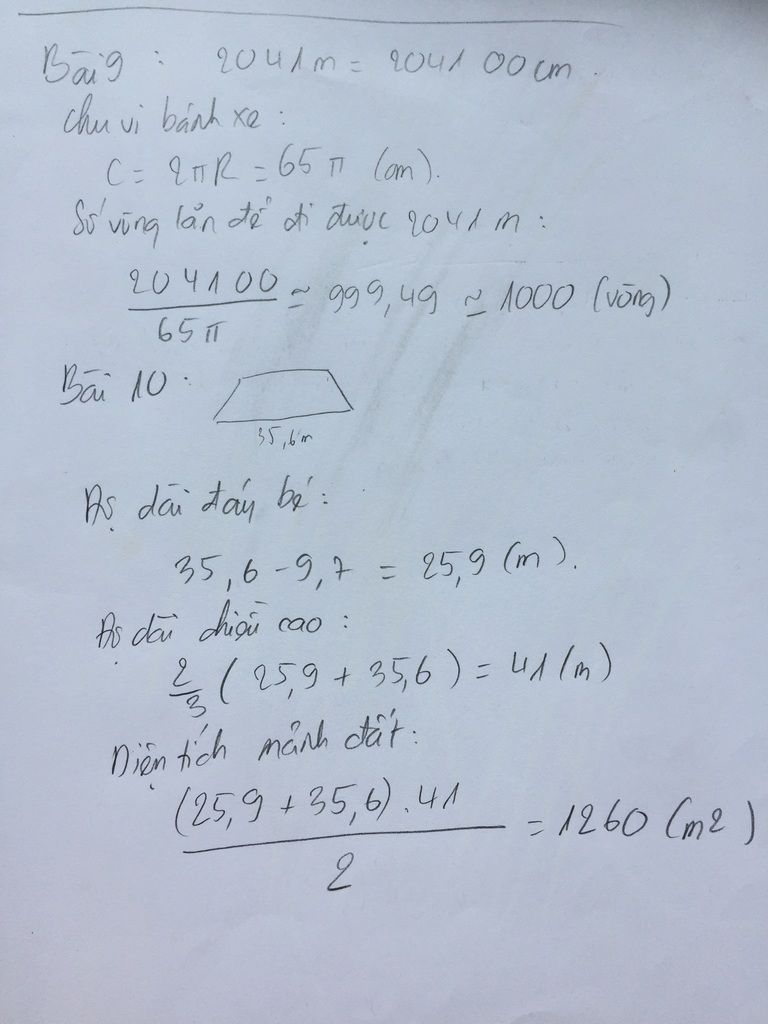 Bài 9 : 2041m = 204100cm.
Chu vi bánh xe :
C = 2πR = 65π (cm).
Số vòng lăn để đi được 2041m :
204100/65π ≃ 999,49 ≃ 1000 (vòng)
Bài 10 :
35,6m
Độ dài đáy bé :
35,6 - 9,7 = 25,9 (m).
Độ dài chiều cao :
2/3 ( 25,9 + 35,6 ) = 41 (m)
Diện tích mảnh đất :
(25,9 + 35,6) . 41 / 2 = 1260 (m2)